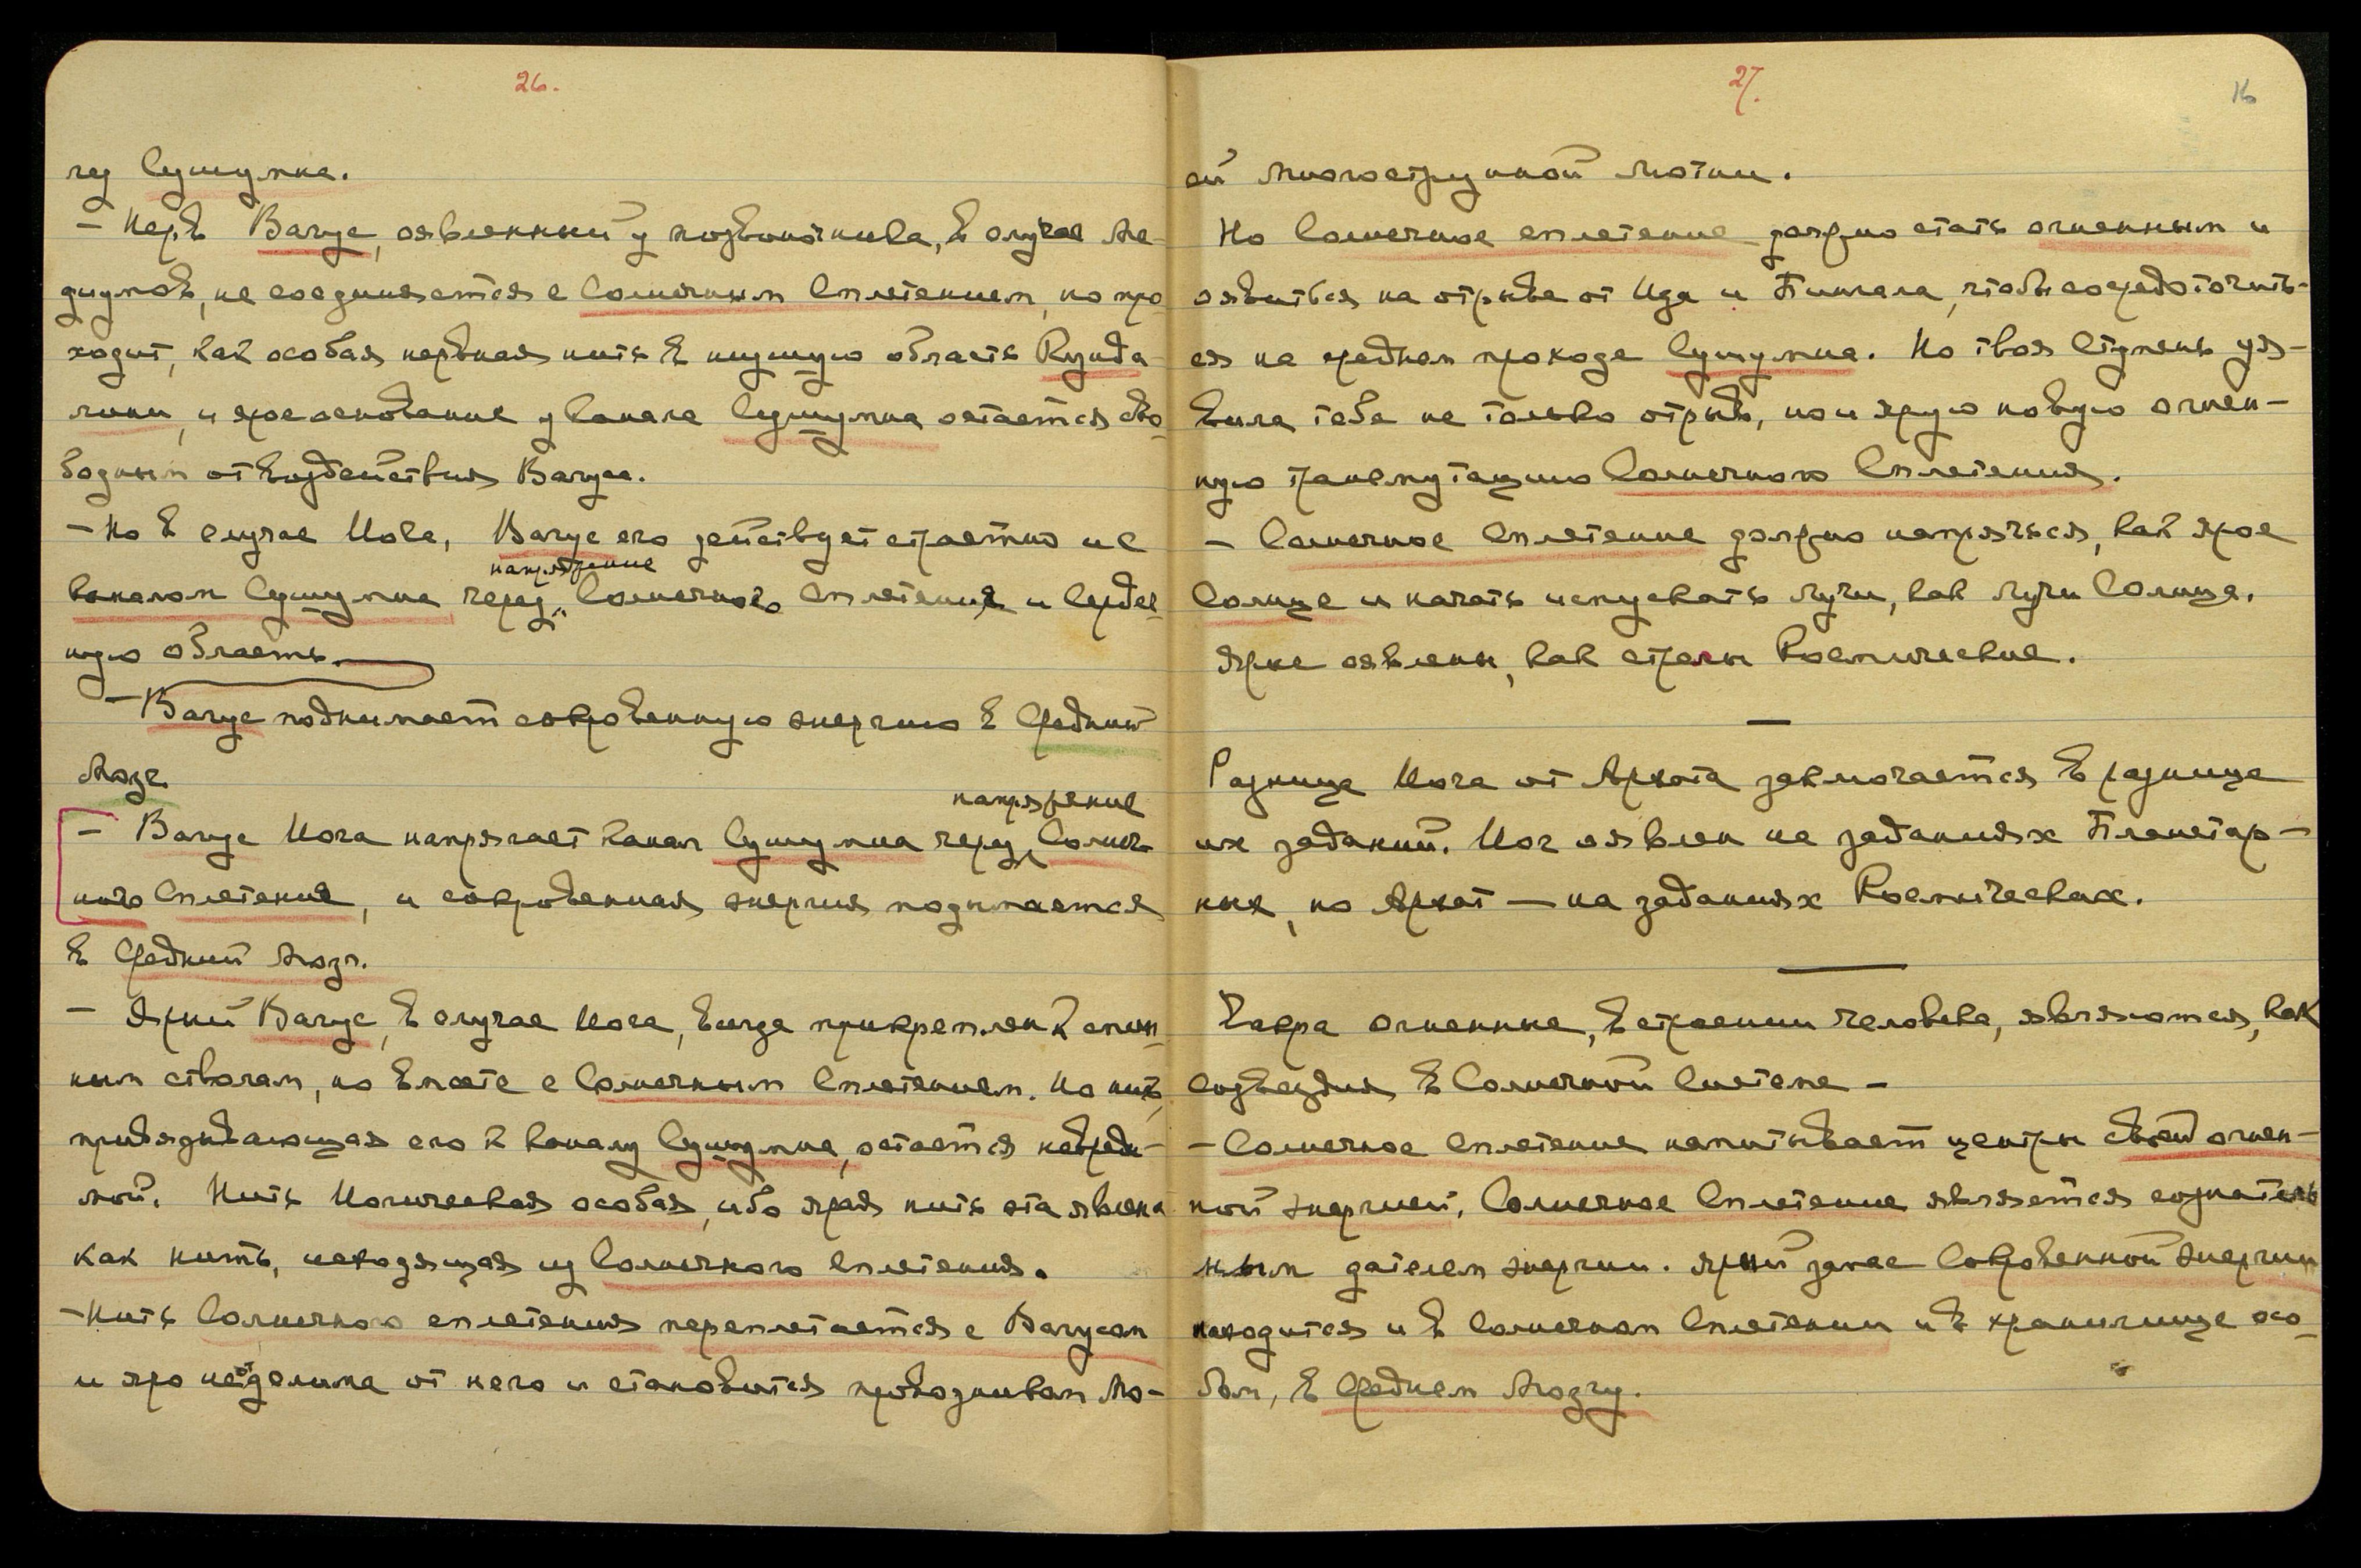 26.
рез Сушумна.
— Нерв Вагус, оявленный у позвоночника, в случае ме-
диумов, не соединяется с Солнечным Сплетением, но про-
ходит, как особая нервная нить в низшую область Кунда-
лини, и ярое основание у канала Сушумна остается сво-
бодным от воздействия Вагуса.
— Но в случае Йога, Вагус его действует страстно и с
напряжение
каналом Сушумна через Солнечного Сплетения и Сердеч-
ную область.
— Вагус поднимает сокровенную энергию в Средний
Мозг.
напряжение
— Вагус Йога напрягает канал Сушумна через Солнеч-
ного Сплетения, и сокровенная энергия подымается
в Средний Мозг.
— Ярый Вагус, в случае Йога, всегда прикреплен к спин-
ным стволам, но вместе с Солнечным Сплетением. Но нить,
привязывающая его к каналу Сушумна, остается невреди-
мой. Нить Йогическая особая, ибо ярая нить эта явлена
как нить, исходящая из Солнечного Сплетения.
— Нить Солнечного сплетения переплетается с Вагусом
и яро неотделима от него и становится проводником Мо-
27.
16
ей многострунной Мощи.
Но Солнечное сплетение должно стать огненным и
оявиться на отрыве от Ида и Пингала, чтобы сосредоточить-
ся на среднем проходе Сушумна. Но твоя Ступень уя-
вила тебе не только отрыв, но и ярую новую огнен-
ную трансмутацию Солнечного Сплетения.
— Солнечное Сплетение должно напрячься, как ярое
Солнце и начать испускать Лучи, как Лучи Солнца.
Ярые оявлены, как стрелы Космические.
—
Разница Йога от Архата заключается в разнице
их заданий. Йог оявлен на заданиях Планетар-
ных, но Архат — на заданиях Космических.
—
Чакры огненные, в строении человека, являются, как
созвездия в Солнечной Системе —
— Солнечное Сплетение напитывает центры своей огнен-
ной энергией. Солнечное Сплетение является сознатель-
ным дателем энергии. Ярый запас Сокровенной Энергии
находится и в Солнечном Сплетении и в хранилище осо-
бом, в Среднем Мозгу.